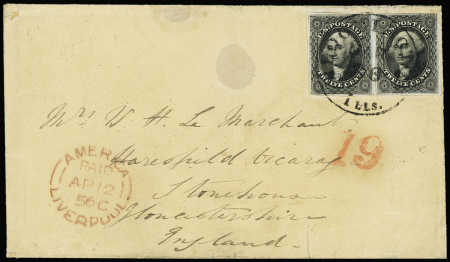 U.S. POSTAGE U.S. POSTAGE
TWELVE CENTS TWELVE CENTS
ILLS.
Mrs W. H. Le Marchant
Haresfield Vicarage
19
Stonehouse
Gloucestershire
England.
AMERICA
PAID
AP 12
56 C
LIVERPOOL